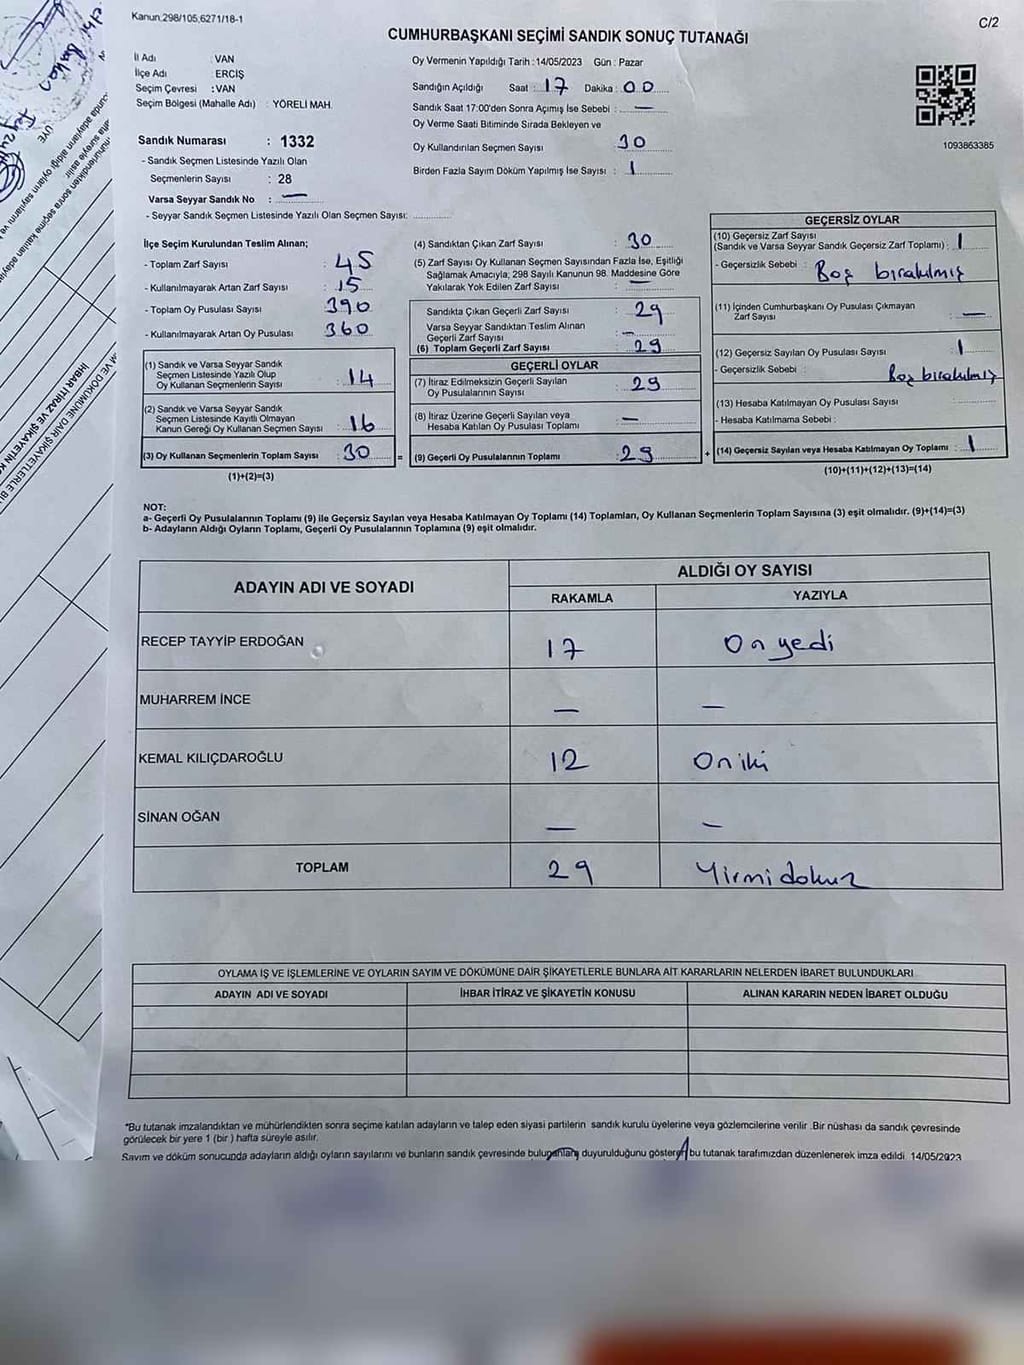 Kanun:298/105,6271/18-1
C/2
CUMHURBAŞKANI SEÇİMİ SANDIK SONUÇ TUTANAĞI
İl Adı : VAN
İlçe Adı : ERCİŞ
Seçim Çevresi : VAN
Seçim Bölgesi (Mahalle Adı) : YÖRELİ MAH.
Sandık Numarası : 1332
- Sandık Seçmen Listesinde Yazılı Olan
Seçmenlerin Sayısı : 28
Varsa Seyyar Sandık No : —
- Seyyar Sandık Seçmen Listesinde Yazılı Olan Seçmen Sayısı: ............
Oy Vermenin Yapıldığı Tarih : 14/05/2023 Gün : Pazar
Sandığın Açıldığı Saat : 17 Dakika : 00
Sandık Saat 17:00'den Sonra Açımış İse Sebebi : —
Oy Verme Saati Bitiminde Sırada Bekleyen ve
Oy Kullandırılan Seçmen Sayısı : 30
Birden Fazla Sayım Döküm Yapılmış İse Sayısı : 1
1093863385
İlçe Seçim Kurulundan Teslim Alınan;
- Toplam Zarf Sayısı : 45
- Kullanılmayarak Artan Zarf Sayısı : 15
- Toplam Oy Pusulası Sayısı : 390
- Kullanılmayarak Artan Oy Pusulası : 360
(1) Sandık ve Varsa Seyyar Sandık
Seçmen Listesinde Yazılı Olup
Oy Kullanan Seçmenlerin Sayısı : 14
(2) Sandık ve Varsa Seyyar Sandık
Seçmen Listesinde Kayıtlı Olmayan
Kanun Gereği Oy Kullanan Seçmen Sayısı : 16
(3) Oy Kullanan Seçmenlerin Toplam Sayısı : 30 =
(1)+(2)=(3)
(4) Sandıktan Çıkan Zarf Sayısı : 30
(5) Zarf Sayısı Oy Kullanan Seçmen Sayısından Fazla İse, Eşitliği
Sağlamak Amacıyla; 298 Sayılı Kanunun 98. Maddesine Göre
Yakılarak Yok Edilen Zarf Sayısı : —
Sandıkta Çıkan Geçerli Zarf Sayısı : 29
Varsa Seyyar Sandıktan Teslim Alınan
Geçerli Zarf Sayısı : —
(6) Toplam Geçerli Zarf Sayısı : 29
GEÇERLİ OYLAR
(7) İtiraz Edilmeksizin Geçerli Sayılan
Oy Pusulalarının Sayısı : 29
(8) İtiraz Üzerine Geçerli Sayılan veya
Hesaba Katılan Oy Pusulası Toplamı : —
(9) Geçerli Oy Pusulalarının Toplamı : 29 +
GEÇERSİZ OYLAR
(10) Geçersiz Zarf Sayısı
(Sandık ve Varsa Seyyar Sandık Geçersiz Zarf Toplamı) : 1
- Geçersizlik Sebebi : Boş bırakılmış
(11) İçinden Cumhurbaşkanı Oy Pusulası Çıkmayan
Zarf Sayısı : —
(12) Geçersiz Sayılan Oy Pusulası Sayısı : 1
- Geçersizlik Sebebi : Boş bırakılmış
(13) Hesaba Katılmayan Oy Pusulası Sayısı :
- Hesaba Katılmama Sebebi :
(14) Geçersiz Sayılan veya Hesaba Katılmayan Oy Toplamı : 1
(10)+(11)+(12)+(13)=(14)
NOT:
a- Geçerli Oy Pusulalarının Toplamı (9) ile Geçersiz Sayılan veya Hesaba Katılmayan Oy Toplamı (14) Toplamları, Oy Kullanan Seçmenlerin Toplam Sayısına (3) eşit olmalıdır. (9)+(14)=(3)
b- Adayların Aldığı Oyların Toplamı, Geçerli Oy Pusulalarının Toplamına (9) eşit olmalıdır.
ADAYIN ADI VE SOYADI
ALDIĞI OY SAYISI
RAKAMLA YAZIYLA
RECEP TAYYİP ERDOĞAN 17 On yedi
MUHARREM İNCE — —
KEMAL KILIÇDAROĞLU 12 On iki
SİNAN OĞAN — —
TOPLAM 29 Yirmi dokuz
OYLAMA İŞ VE İŞLEMLERİNE VE OYLARIN SAYIM VE DÖKÜMÜNE DAİR ŞİKAYETLERLE BUNLARA AİT KARARLARIN NELERDEN İBARET BULUNDUKLARI
ADAYIN ADI VE SOYADI İHBAR İTİRAZ VE ŞİKAYETİN KONUSU ALINAN KARARIN NEDEN İBARET OLDUĞU
*Bu tutanak imzalandıktan ve mühürlendikten sonra seçime katılan adayların ve talep eden siyasi partilerin sandık kurulu üyelerine veya gözlemcilerine verilir .Bir nüshası da sandık çevresinde
görülecek bir yere 1 (bir ) hafta süreyle asılır.
Sayım ve döküm sonucunda adayların aldığı oyların sayılarını ve bunların sandık çevresinde bulunanlara duyurulduğunu gösteren bu tutanak tarafımızdan düzenlenerek imza edildi. 14/05/2023